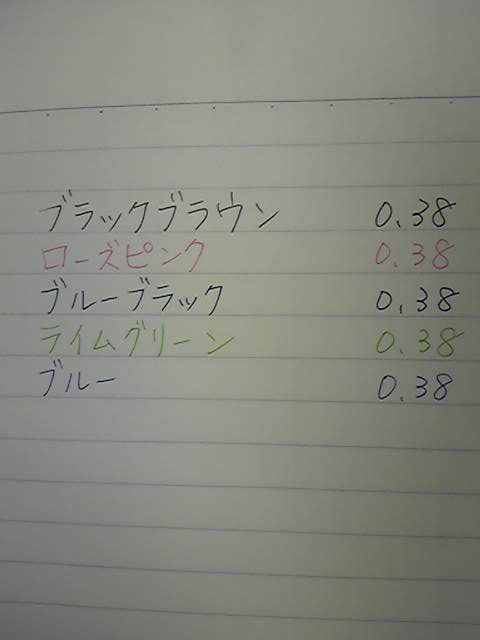 ブラックブラウン 0.38
ローズピンク 0.38
ブルーブラック 0.38
ライムグリーン 0.38
ブルー 0.38